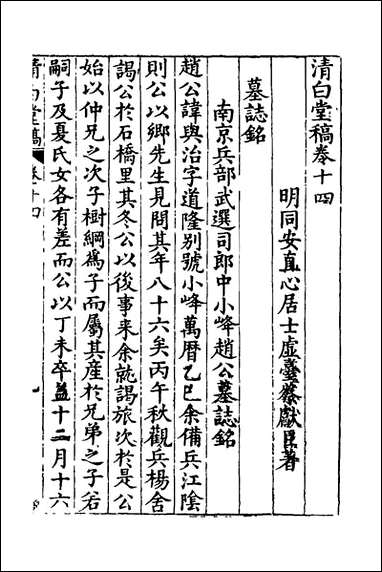 清白堂稿卷十四
明同安直心居士虛臺蔡獻臣著
墓誌銘
南京兵部武選司郎中小峰趙公墓誌銘
趙公諱與治字道隆别號小峰萬曆乙巳余備兵江陰
則公以鄉先生見問其年八十六矣丙午秋觀兵楊舍
謁公於石橋里其冬公以後事来余就謁旅次於是公
始以仲兄之次子樹綱為子而屬其産於兄弟之子若
嗣子及夏氏女各有差而公以丁未卒葢十二月十六
清白堂稿 卷十四